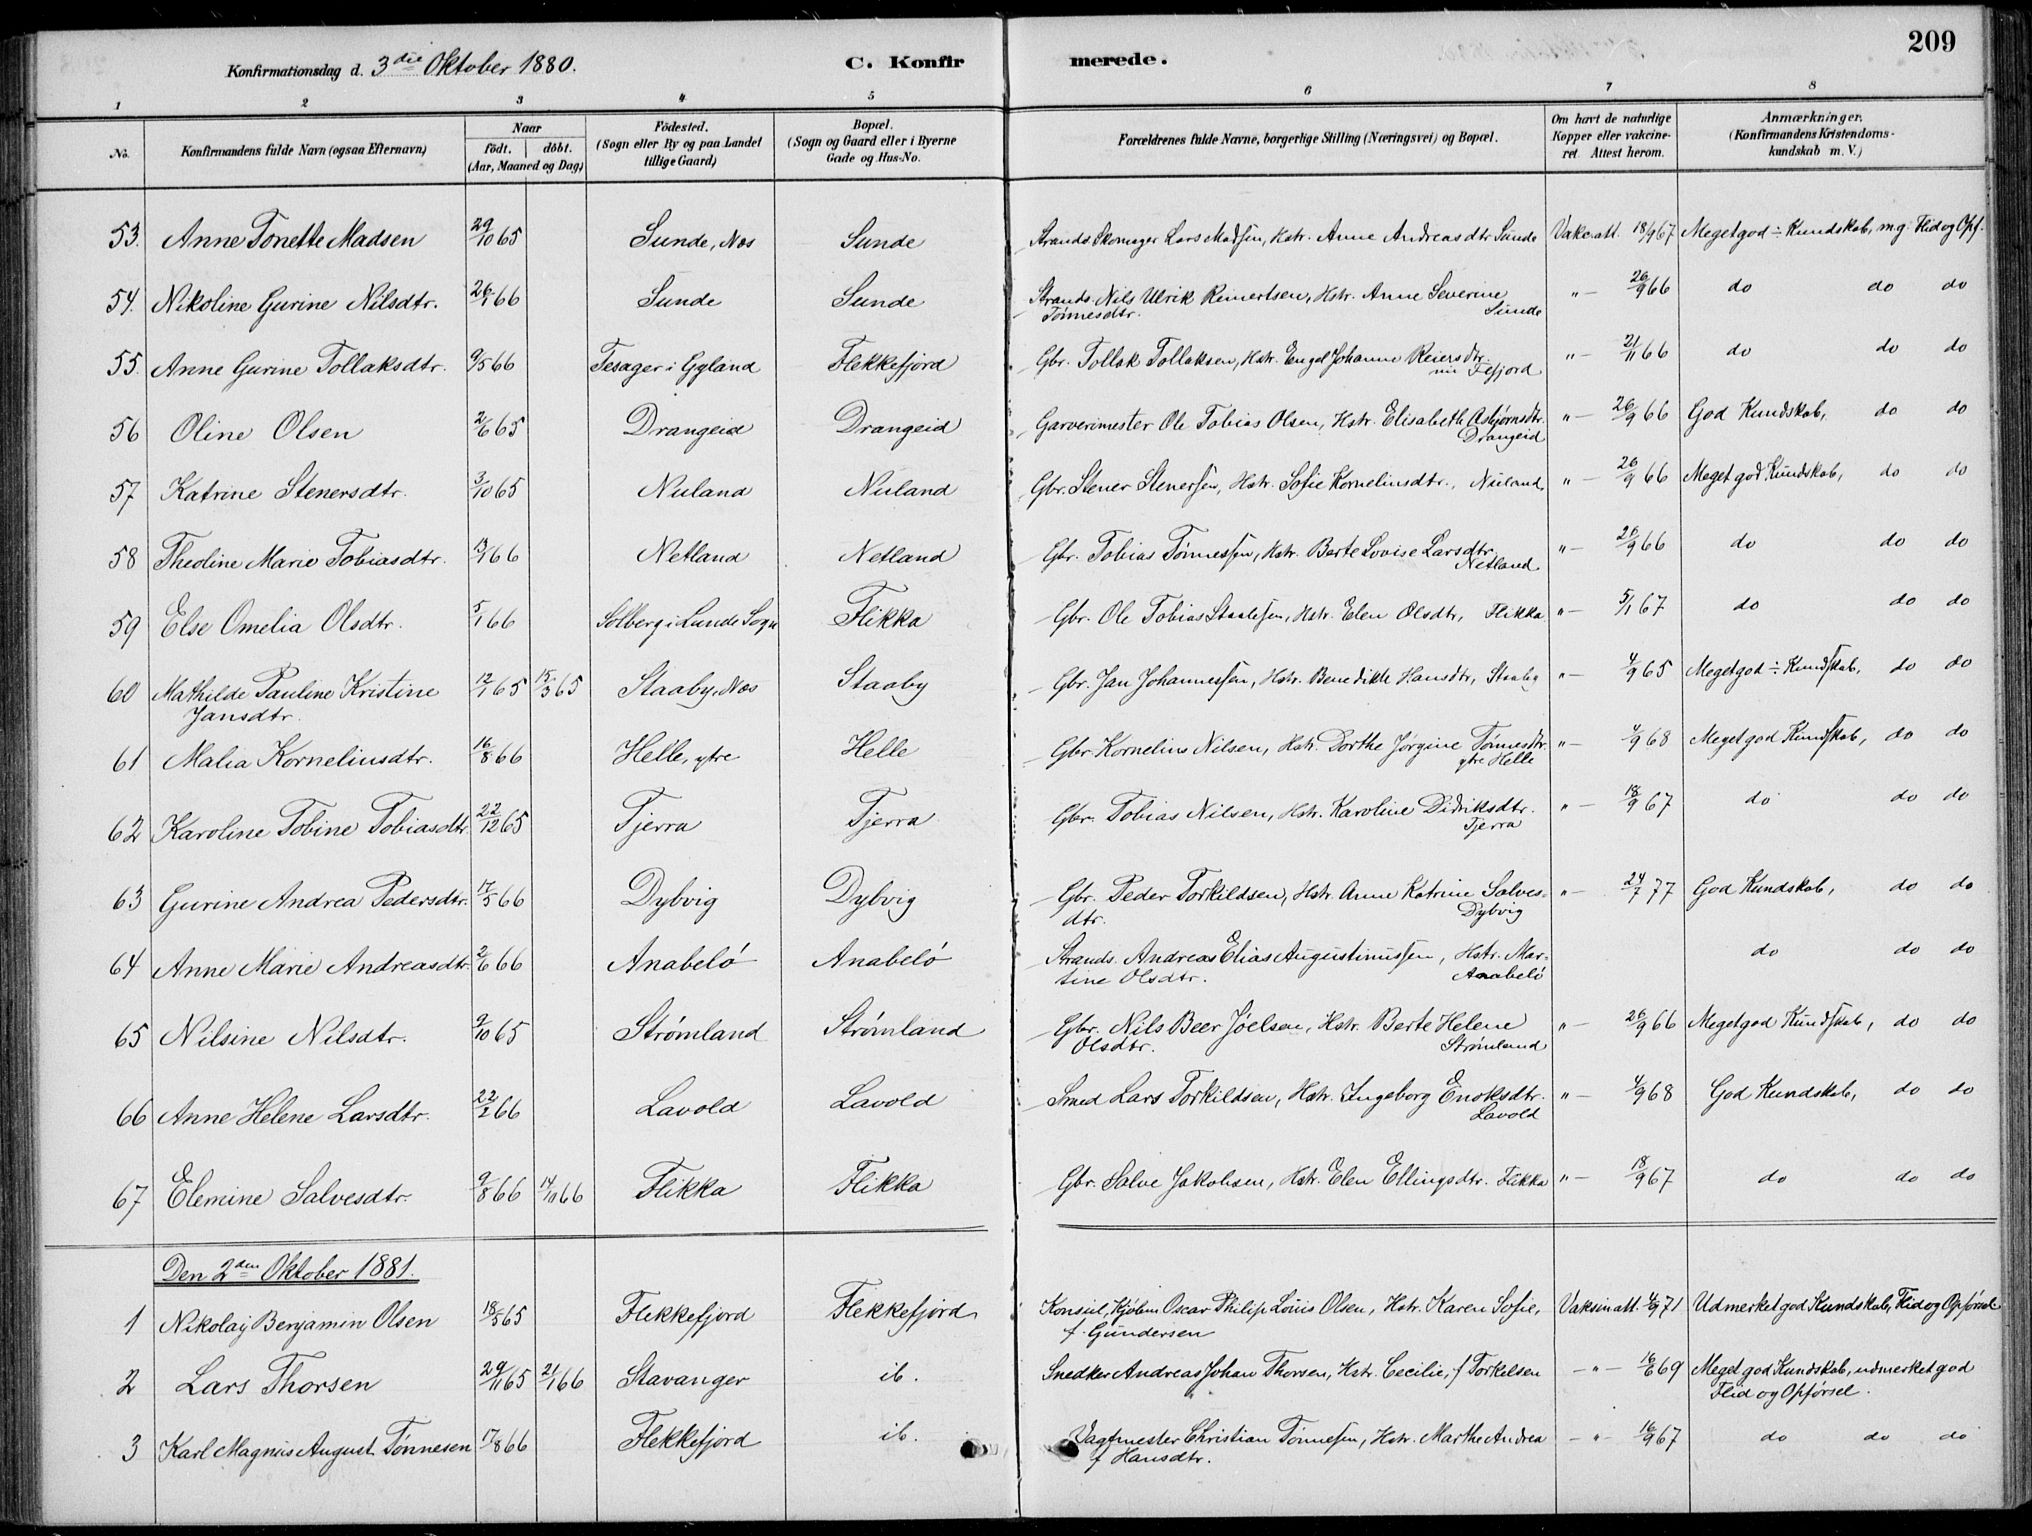 209
Konfirmationsdag d. 3die Oktober 1880. C. Konfirmerede.
1 2 3 4 5 6 7 8
No. Konfirmandens fulde Navn (ogsaa Efternavn) Naar født. døbt. (Aar, Maaned og Dag) Fødested. (Sogn eller By og paa Landet tillige Gaard) Bopæl. (Sogn og Gaard eller i Byerne Gade og Hus-No. Forældrenes fulde Navne, borgerlige Stilling (Næringsvei) og Bopæl. Om havt de naturlige Kopper eller vakcineret. Attest herom. Anmærkninger. (Konfirmandens Kristendomskundskab m. V.)
53. Anne Tonette Madsen 29/10 65 Sunde, Næs Sunde Strands. Skomager Lars Madsen, Hstr. Anne Andreasdtr Sunde Vakc. att. 18/9 67 Meget god ÷ Kundskab, mg Flid og Opf.
54. Nikoline Gurine Nilsdtr. 26/1 66 Sunde Sunde Strands. Nils Ulrik Reinertsen, Hstr. Anne Severine Tønnesdtr. Sunde " — 26/9 66 do do do
55. Anne Gurine Tollaksdtr. 9/5 66 Tesager i Gyland Flekkefjord Gbr. Tollak Tollaksen, Hstr. Engel Johanne Reiersdtr. nu Fefjord " — 21/11 66 do do do
56 Oline Olsen 2/6 65 Drangeid Drangeid Garverimester Ole Tobias Olsen, Hstr. Elisabeth Asbjørnsdtr. Drangeid " — 26/9 66 God Kundskab, do do
57 Katrine Stenersdtr. 3/10 65 Nuland Nuland Gbr. Stener Stenersen, Hstr. Sofie Korneliusdtr., Nuland " — 26/9 66 Meget god Kundskab, do do
58 Theoline Marie Tobiasdtr. 13/1 66 Netland Netland Gbr. Tobias Tønnessen, Hstr. Berte Lovise Larsdtr. Netland " — 26/9 66 do do do
59 Else Omelia Olsdtr. 5/1 66 Solberg i Lunde Sogn Flikka Gbr. Ole Tobias Staalesen, Hstr. Elen Olsdtr, Flikka " — 5/1 67 do do do
60 Mathilde Pauline Kristine Jansdtr. 12/1 65 15/3 65 Staaby, Næs Staaby Gbr. Jan Johannessen, Hstr. Benedikte Hansdtr, Staaby " — 4/9 65 Meget god ÷ Kundskab, do do
61 Malia Korneliusdtr. 16/8 66 Helle, ytre Helle Gbr. Kornelius Nilsen, Hstr. Dorthe Jørgine Tønnesdtr. ytre Helle " — 4/9 68 Meget god Kundskab, do do
62 Karoline Tobine Tobiasdtr. 22/12 65 Tjerra Tjerra Gbr. Tobias Nilsen, Hstr. Karoline Didriksdtr. Tjerra " — 18/9 67 do do do
63 Gurine Andrea Pedersdtr. 17/5 66 Dybvig Dybvig Gbr. Peder Torkildsen, Hstr. Anne Katrine Salvesdtr. Dybvig " — 24/7 77 God Kundskab, do do
64 Anne Marie Andreasdtr. 2/6 66 Anabelø Anabelø Strands. Andreas Elias Augustinussen, Hstr. Martine Olsdtr. Anabelø do do do
65 Nilsine Nilsdtr. 9/10 65 Strømland Strømland Gbr. Nils Beer Joelsen, Hstr. Berte Helene Olsdtr. Strømland " — 26/9 66 Meget god Kundskab, do do
66 Anne Helene Larsdtr. 22/2 66 Lavold Lavold Smed Lars Torkildsen, Hstr. Ingeborg Enoksdtr. Lavold " — 4/9 68 God Kundskab, do do
67 Elemine Salvesdtr. 9/8 66 14/10 66 Flikka Flikka Gbr. Salve Jakobsen, Hstr. Elen Ellingsdtr. Flikka " — 18/9 67 do do do
Den 2den Oktober 1881.
1 Nikolaj Benjamin Olsen 18/5 65 Flekkefjord Flekkefjord Konsul, Kjøbm. Oscar Philip Louis Olsen, Hstr. Karen Sofie, f. Gundersen Vaksin att. 4/9 71 Udmerket god Kundskab, Flid og Opførsel
2 Lars Thorsen 29/11 65 21/1 66 Stavanger ib. Snedker Andreas Johan Thorsen, Hstr. Cecilie, f Torkelsen — " — 16/6 69 Meget god Kundskab, udmerket god Flid og Opførsel.
3 Karl Magnus August Tønnesen 17/8 66 Flekkefjord ib. Vagtmester Christian Tønnesen, Hstr. Marthe Andrea f Hansdtr. — " — 16/9 67 do do do